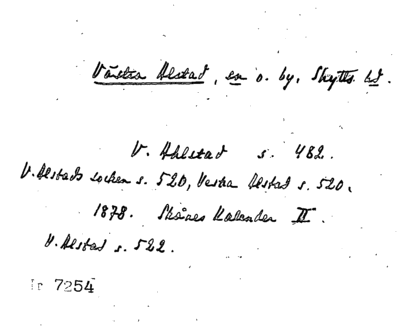 Västra Alstad, sn o. by, Skytts hd.
V. Ahlstad s. 482.
V. Alstads socken s. 520, Vestra Alstad s. 520.
1878. Skånes Kalender II.
V. Alstad s. 522.
Ir 7254